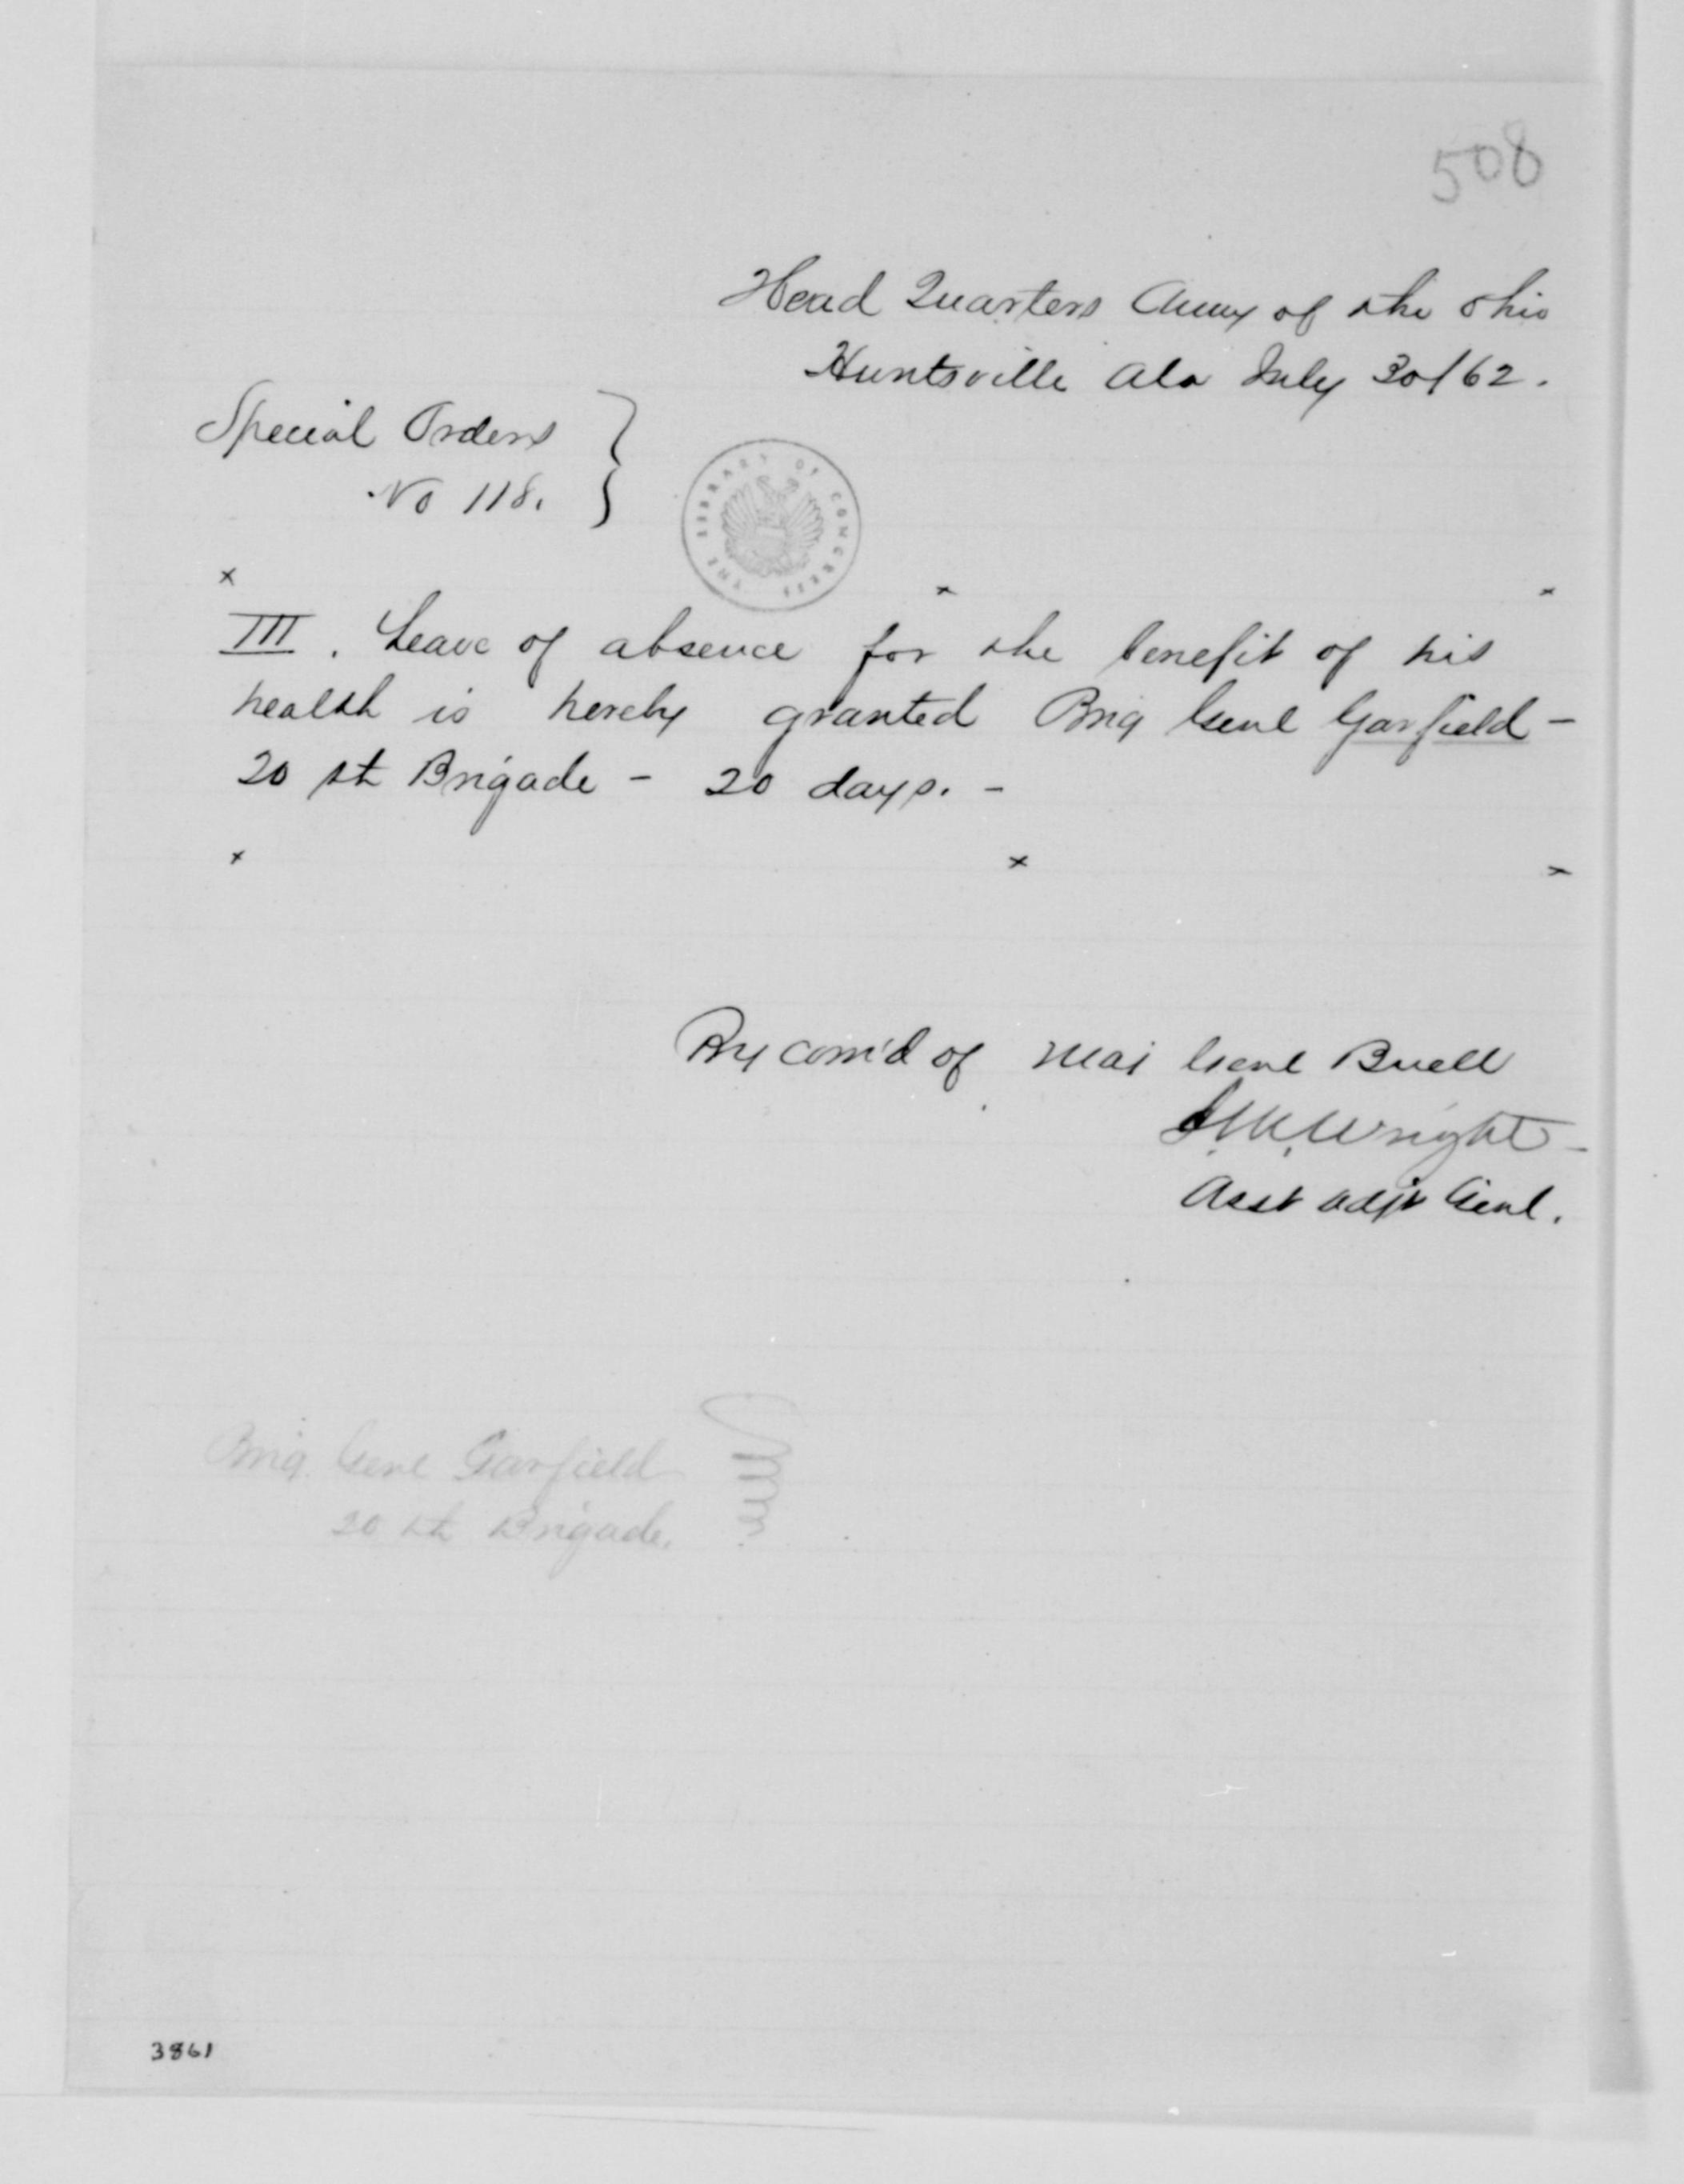 508
Head Quarters Army of the Ohio
Huntsville Ala July 30/62.
Special Orders }
No 118. }
THE LIBRARY OF CONGRESS
x x x
III. Leave of absence for the benefit of his
health is hereby granted Brig Genl Garfield -
20th Brigade - 20 days. -
x x x
By com'd of Maj Genl Buell
J. M. Wright -
Asst Adjt Genl.
Brig. Genl Garfield
20th Brigade.
3861